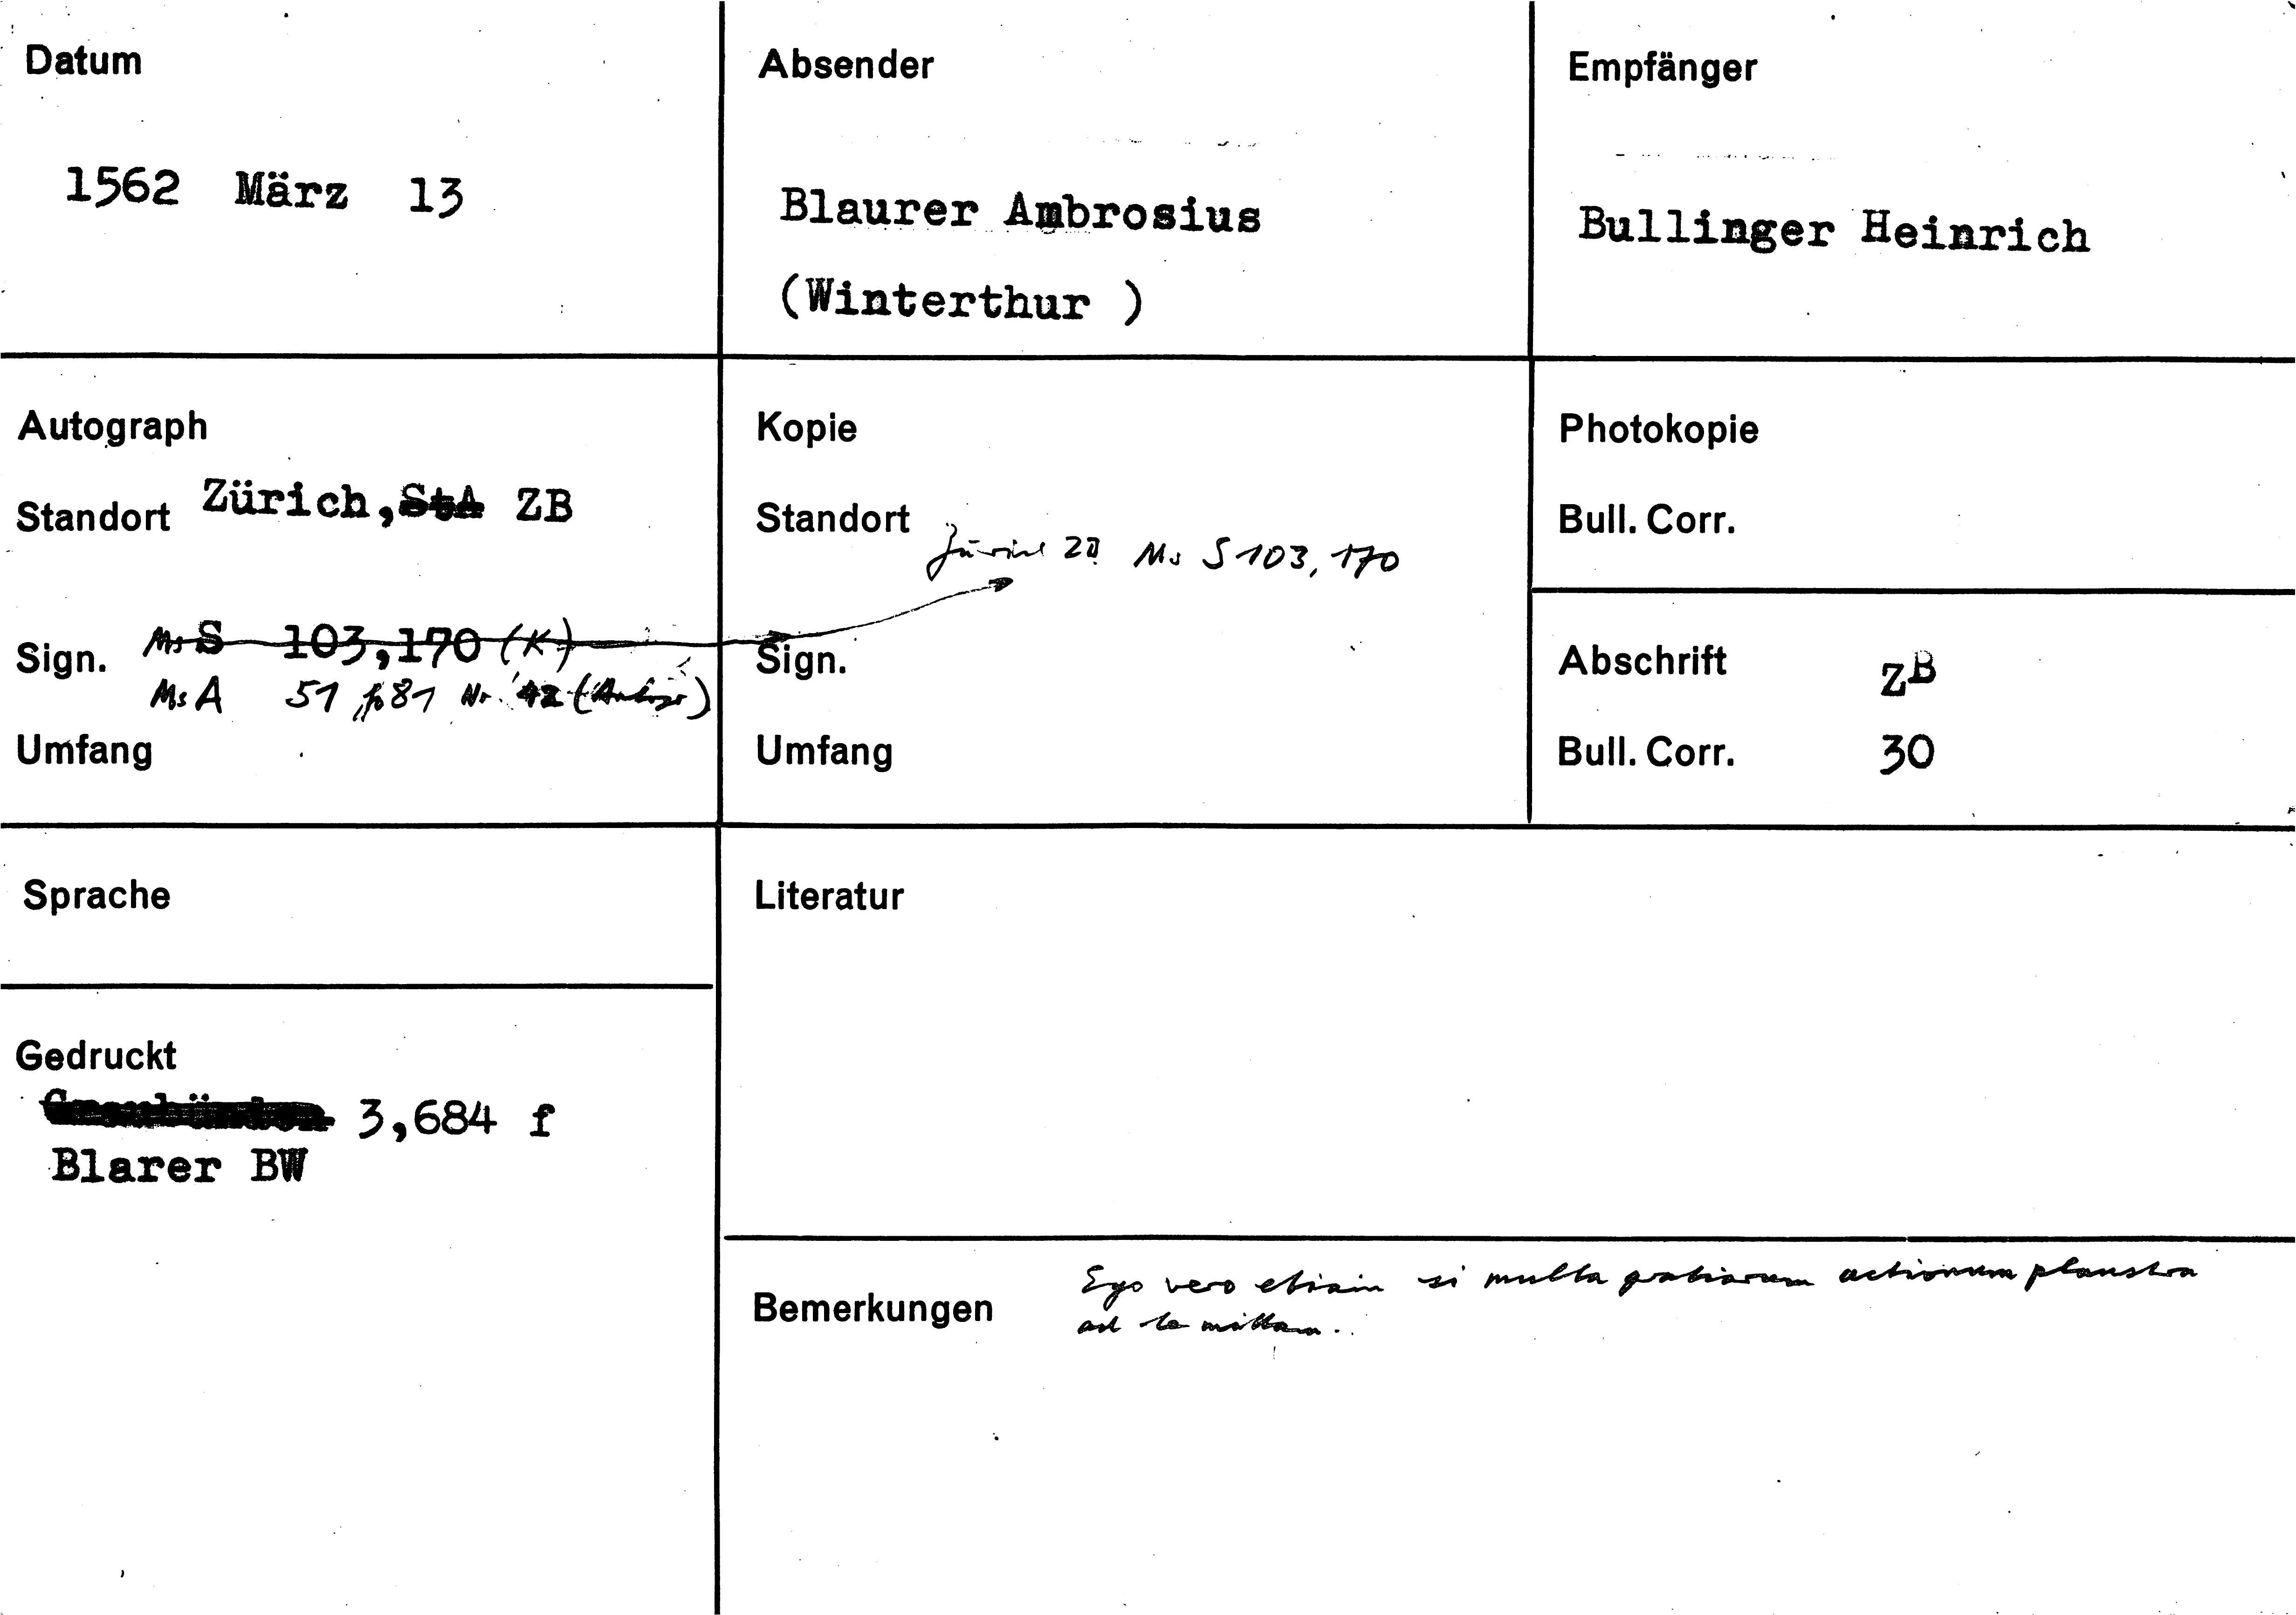 Datum
1562 März 13
Absender
Blaurer Ambrosius
(Winterthur )
Empfänger
Bullinger Heinrich
Autograph
Standort Zürich, StA ZB
Sign. Ms S 103,170 (K)
Ms A 51, 81 Nr. 42
Umfang
Kopie
Standort Zürich ZB Ms S 103, 170
Sign.
Umfang
Photokopie
Bull. Corr.
Abschrift ZB
Bull. Corr. 30
Sprache
Gedruckt
3,684 f
Blarer BW
Literatur
Bemerkungen
Ego vero etiam si multa gratiarum actionum plaustra
ad te mittam..